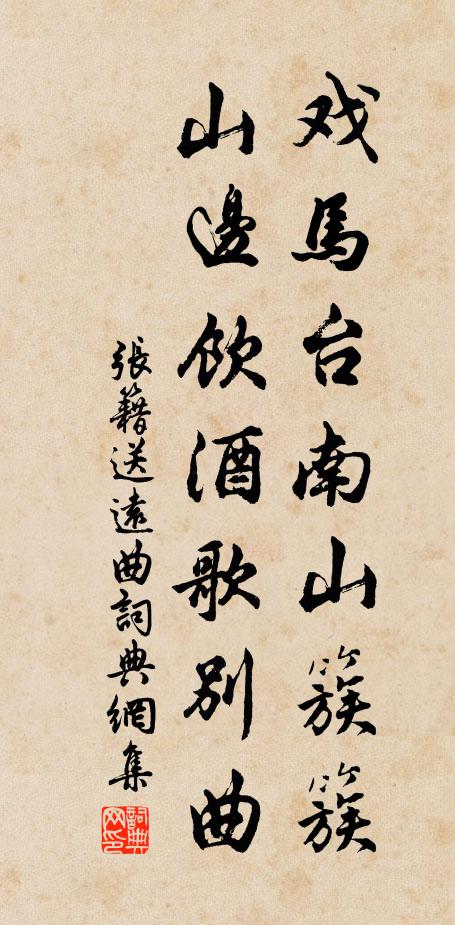 戏馬台南山簇簇
山邊飲酒歌別曲
張籍送遠曲詞典網集
詞典网印